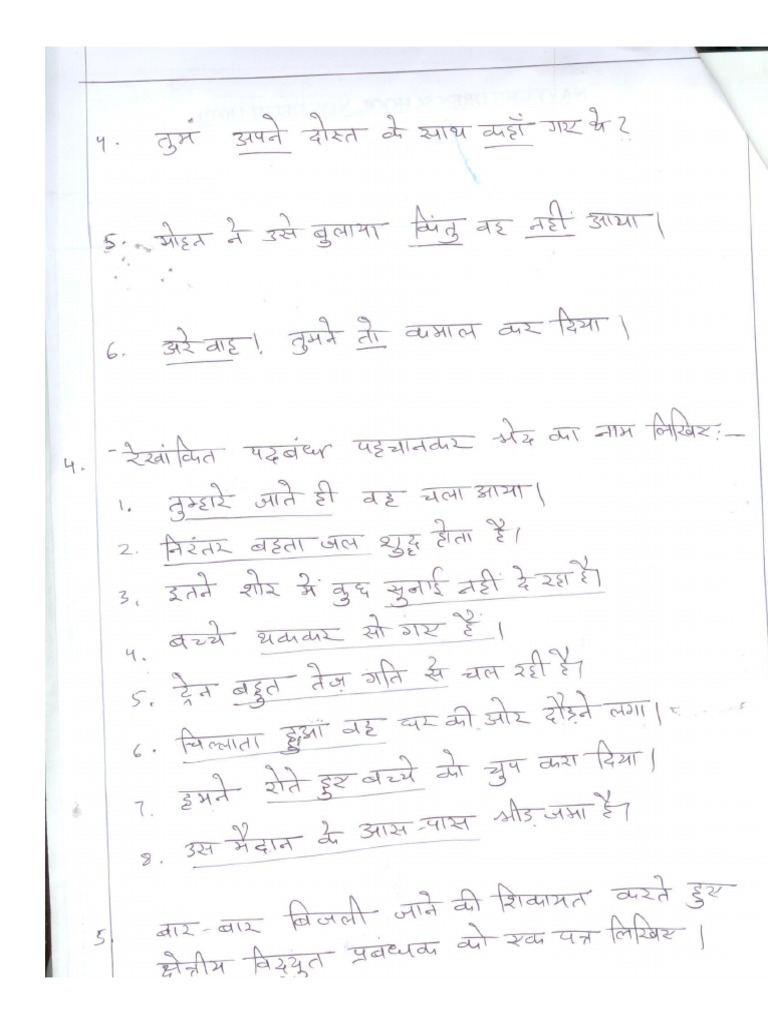 4. तुम अपने दोस्त के साथ कहाँ गए थे?
5. मोहन ने उसे बुलाया किंतु वह नहीं आया।
6. अरे वाह! तुमने तो कमाल कर दिया।
4. रेखांकित पदबंध पहचानकर भेद का नाम लिखिए:-
1. तुम्हारे जाते ही वह चला आया।
2. निरंतर बहता जल शुद्ध होता है।
3. इतने शोर में कुछ सुनाई नहीं दे रहा है।
4. बच्चे थककर सो गए हैं।
5. ट्रेन बहुत तेज़ गति से चल रही है।
6. चिल्लाता हुआ वह घर की ओर दौड़ने लगा।
7. हमने रोते हुए बच्चे को चुप करा दिया।
8. उस मैदान के आस-पास भीड़ जमा है।
5. बार-बार बिजली जाने की शिकायत करते हुए
क्षेत्रीय विद्युत प्रबंधक को एक पत्र लिखिए।